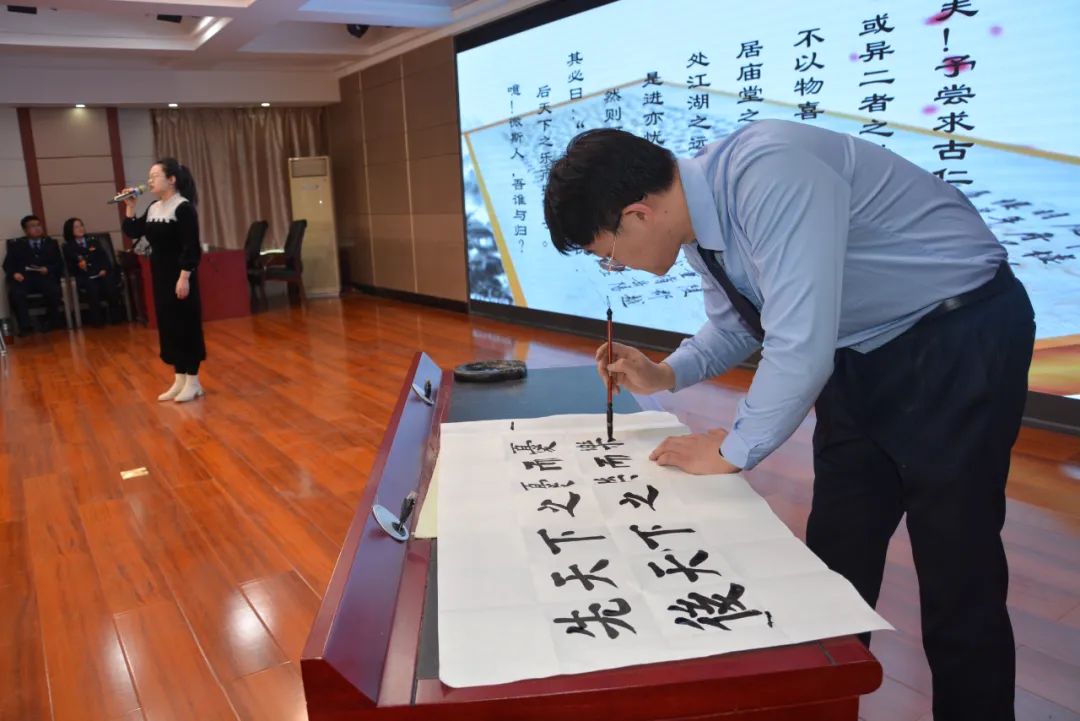 夫！予尝求古仁
或异二者之
不以物喜
居庙堂之
处江湖之远
是进亦忧
然则
其必曰：“
后天下之乐
噫！微斯人，吾谁与归？
先天下之憂而憂
後天下之樂而樂